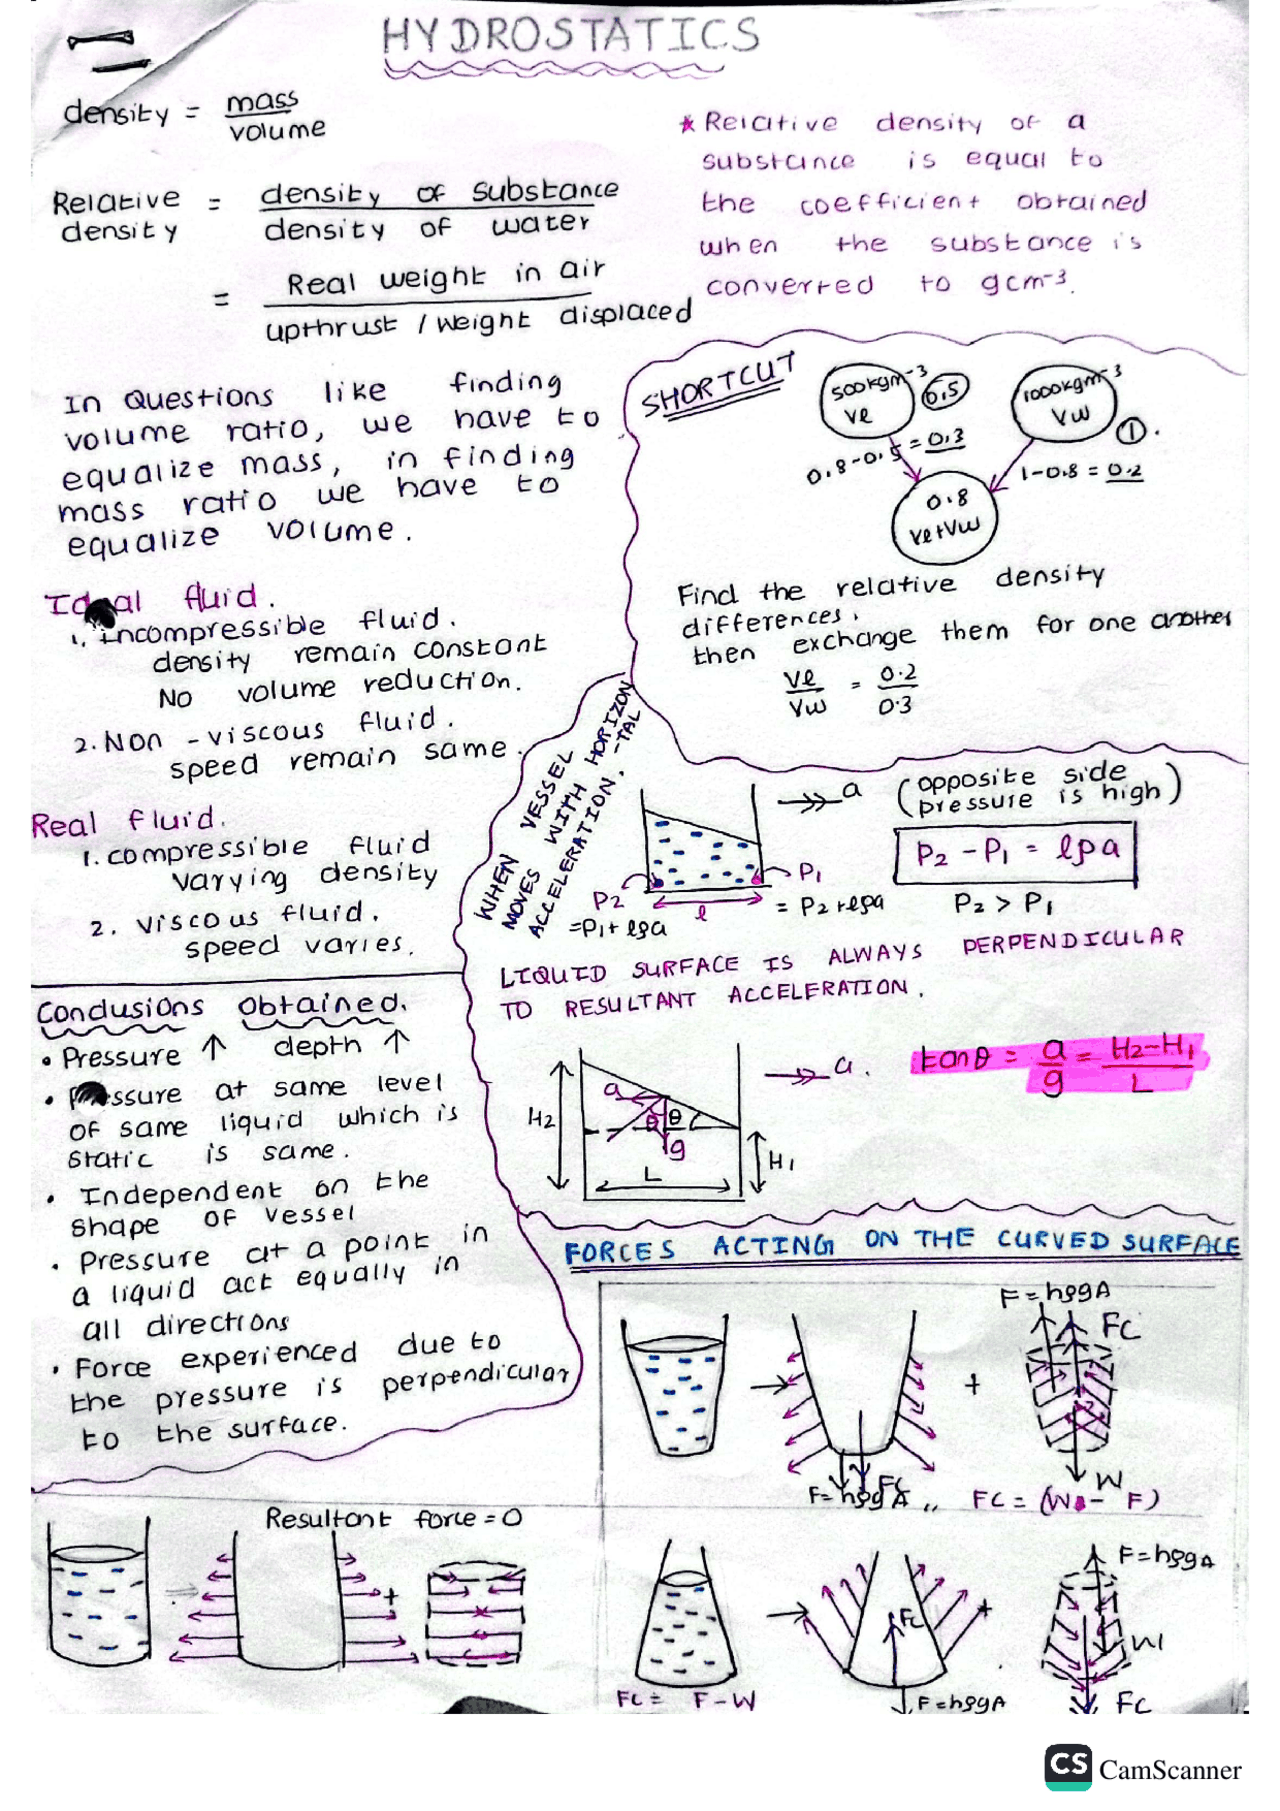 HYDROSTATICS
density = mass
volume
Relative density = density of substance
density of water
= Real weight in air
upthrust / weight displaced
* Relative density of a
substance is equal to
the coefficient obtained
when the substance is
converted to gcm⁻³.
In Questions like finding
volume ratio, we have to
equalize mass, in finding
mass ratio we have to
equalize volume.
SHORTCUT
500kgm⁻³
Ve
0.5
1000kgm⁻³
Vw
1
0.8-0.5 = 0.3
1-0.8 = 0.2
0.8
Ve+Vw
Find the relative density
differences.
then exchange them for one another
Ve = 0.2
Vw 0.3
Ideal fluid.
1. incompressible fluid.
density remain constant
No volume reduction.
2. Non-viscous fluid.
speed remain same.
Real fluid.
1. compressible fluid
varying density
2. viscous fluid.
speed varies.
WHEN VESSEL
MOVES WITH HORIZON
-TAL
ACCELERATION.
a
(opposite side
pressure is high)
P2 - P1 = lρa
P2 > P1
P2
=P1+lρa
l
P1
= P2+lρa
LIQUID SURFACE IS ALWAYS PERPENDICULAR
TO RESULTANT ACCELERATION.
H2
a
θ
θ
g
L
H1
a.
tanθ = a = H2-H1
g L
Conclusions obtained.
• Pressure ↑ depth ↑
• Pressure at same level
of same liquid which is
static is same.
• Independent on the
shape of vessel
• Pressure at a point in
a liquid act equally in
all directions
• Force experienced due to
the pressure is perpendicular
to the surface.
FORCES ACTING ON THE CURVED SURFACE
F=hρgA
FC
+
W
F=hρgA
FC
FC = (W - F)
Resultant force=0
+
FC = F-W
FC
F=hρgA
+
F=hρgA
W
FC
CS CamScanner